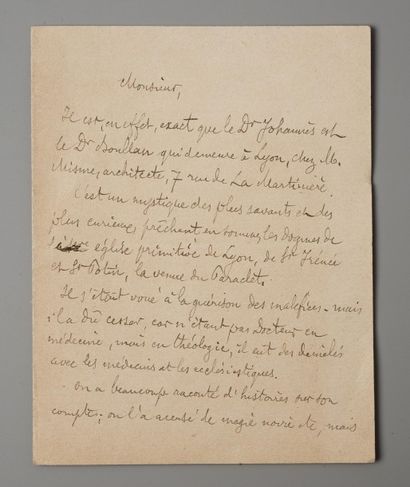 Monsieur,
Il est, en effet, exact que le Dr Johannès est
le Dr Boullan qui demeure à Lyon, chez M.
Misme, architecte, 7 rue de La Martinière.
C'est un mystique des plus savants et des
plus curieux, prêchant en somme, les dogmes de
église primitive de Lyon, de St Irénée
et St Potin, la venue du Paraclet.
Il s'était voué à la guérison des maléfices - mais
il a dû cesser, car n'étant pas docteur en
médecine, mais en théologie, il eut des démêlés
avec les médecins et les ecclésiastiques.
- on a beaucoup raconté d'histoires sur son
compte; on l'a accusé de magie noire etc, mais